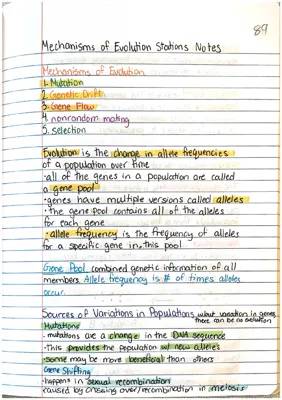 89
Mechanisms of Evolution Stations Notes
Mechanisms of Evolution
1. Mutation
2. Genetic Drift
3. Gene Flow
4. nonrandom mating
5. selection
Evolution is the change in allele frequencies
of a population over time
·all of the genes in a population are called
a gene pool
·genes have multiple versions called alleles
·the gene pool contains all of the alleles
for each gene
·allele frequency is the frequency of alleles
for a specific gene in this pool
Gene Pool: combined genetic information of all
members. Allele frequency is # of times alleles
occur.
Sources of Variations in Populations without variation in genes,
there can be no evolution
Mutations
·mutations are a change in the DNA sequence
·This provides the population w/ new alleles
·some may be more beneficial than others
Gene Shifting
·happens in sexual recombination
caused by crossing over/recombination in meiosis